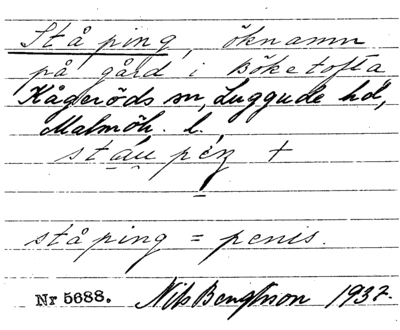 Ståping, öknamn
på gård i Böketofta
Kågeröds sn, Luggude hd,
Malmöh. l.
stáu péŋ +
ståping = penis.
Nr 5688. Nils Bengtsson 1937.